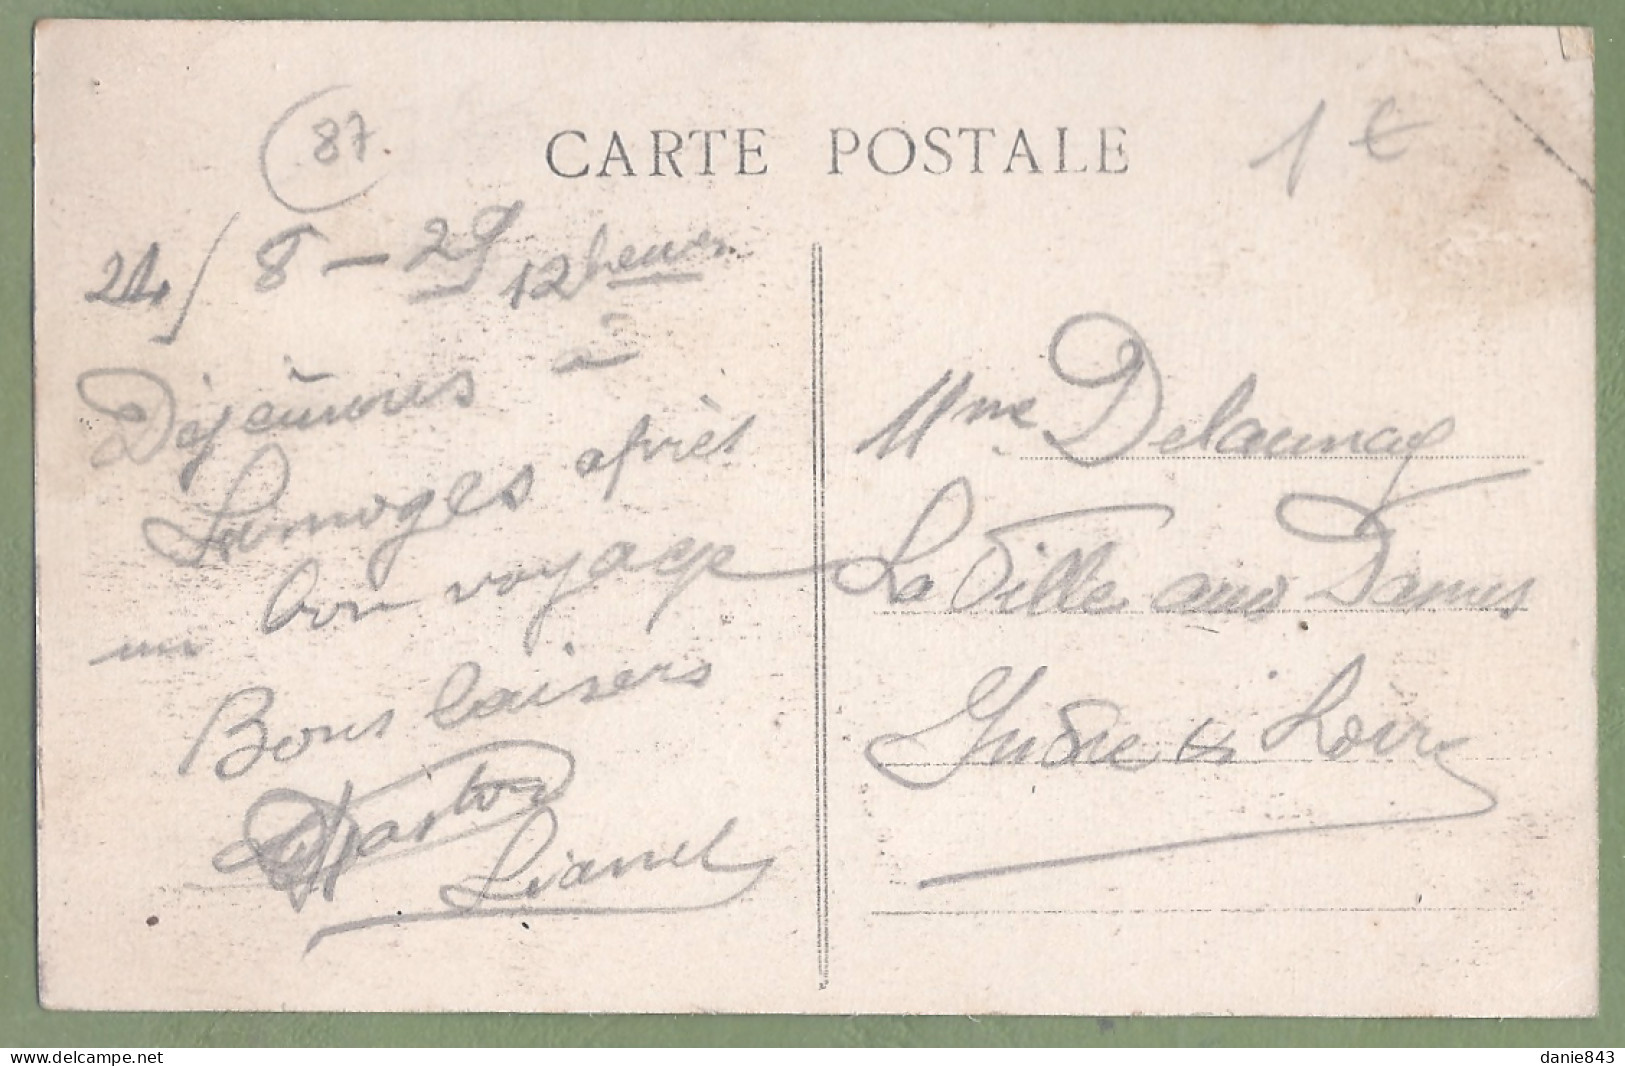 87
CARTE POSTALE
1 €
24/8-29 12 heures
Déjeunons à
Limoges après
un bon voyage
Bons baisers
Gaston
Lianel
Mme Delaunay
La Ville aux Dames
Indre et Loire
danie843